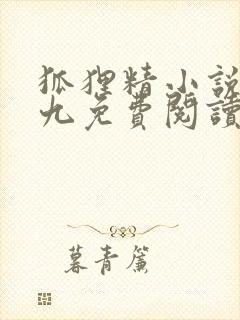 狐狸精小說
九免費閱讀
暮青簾